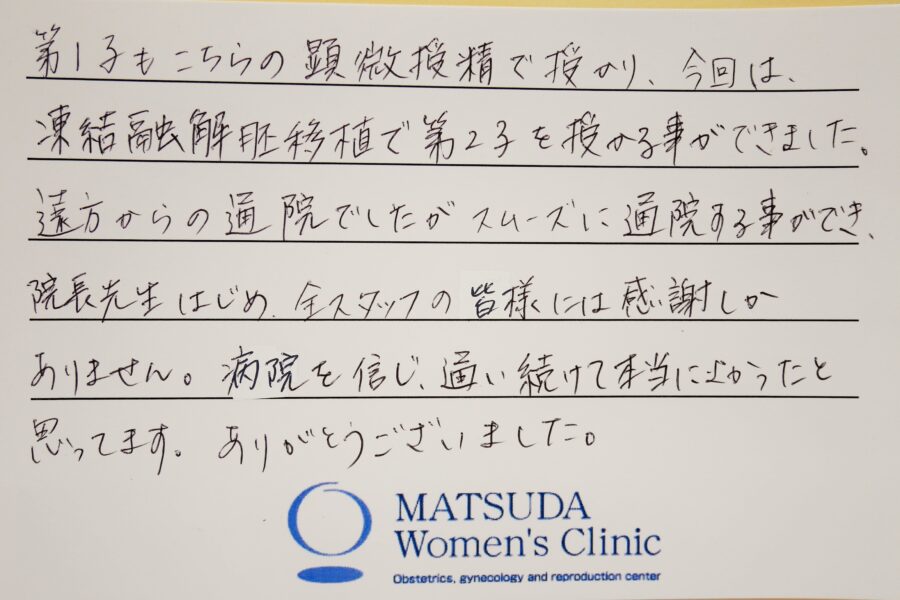 第1子もこちらの顕微授精で授かり、今回は、
凍結融解胚移植で第2子を授かる事ができました。
遠方からの通院でしたがスムーズに通院する事ができ、
院長先生はじめ、全スタッフの皆様には感謝しか
ありません。病院を信じ、通い続けて本当によかったと
思ってます。ありがとうございました。
MATSUDA
Women's Clinic
Obstetrics, gynecology and reproduction center